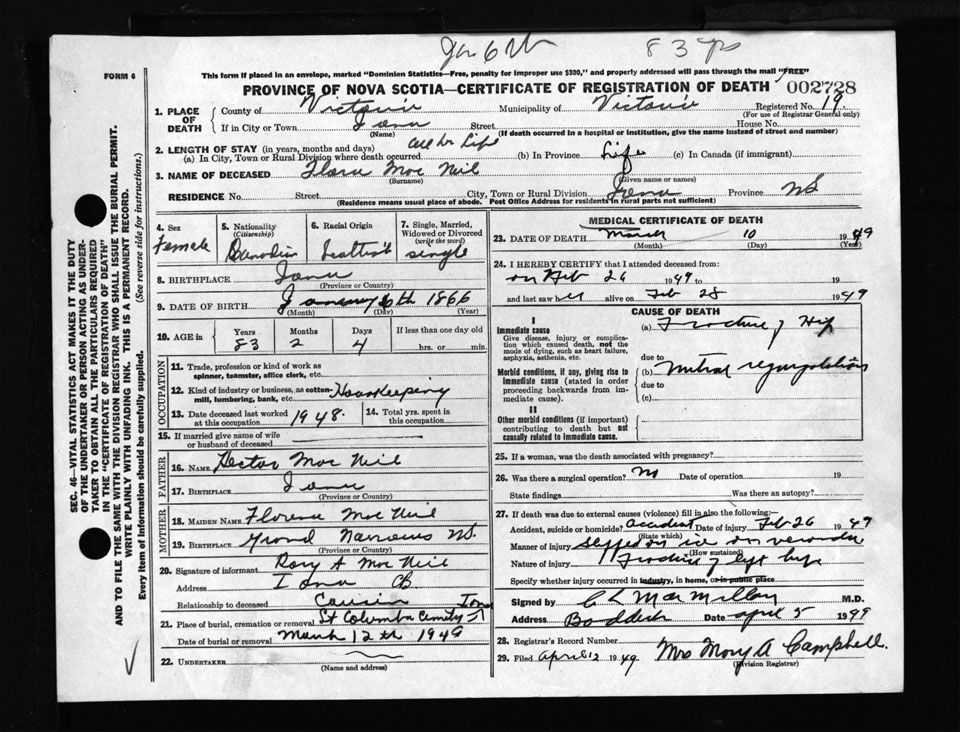 Jan 6th 83 yrs
FORM 6
This form if placed in an envelope, marked "Dominion Statistics—Free, penalty for improper use $300," and properly addressed will pass through the mail "FREE"
PROVINCE OF NOVA SCOTIA—CERTIFICATE OF REGISTRATION OF DEATH 002728
1. PLACE OF DEATH County of Victoria Municipality of Victoria Registered No. 19.
(For use of Registrar General only)
If in City or Town Iona Street House No.
(Name) (If death occurred in a hospital or institution, give the name instead of street and number)
2. LENGTH OF STAY (in years, months and days)
(a) In City, Town or Rural Division where death occurred All her Life (b) In Province Life (c) In Canada (if immigrant)
3. NAME OF DECEASED Flora Mac Neil
(Surname) (Given name or names)
RESIDENCE No. Street City, Town or Rural Division Iona Province NS
(Residence means usual place of abode. Post Office Address for residents in rural parts not sufficient)
4. Sex Female
5. Nationality (Citizenship) Canadian
6. Racial Origin Scottish
7. Single, Married, Widowed or Divorced (write the word) single
8. BIRTHPLACE Iona
(Province or Country)
9. DATE OF BIRTH January 6th 1866
(Month) (Day) (Year)
10. AGE in Years 83 Months 2 Days 4 If less than one day old hrs. or min.
OCCUPATION
11. Trade, profession or kind of work as spinner, teamster, office clerk, etc.
12. Kind of industry or business, as cotton-mill, lumbering, bank, etc. Housekeeping
13. Date deceased last worked at this occupation 1948. 14. Total yrs. spent in this occupation
15. If married give name of wife or husband of deceased
FATHER
16. NAME Hector Mac Neil
17. BIRTHPLACE Iona
(Province or Country)
MOTHER
18. MAIDEN NAME Florence Mac Neil
19. BIRTHPLACE Grand Narrows NS.
(Province or Country)
20. Signature of informant Rory A Mac Neil
Address Iona CB
Relationship to deceased Cousin
21. Place of burial, cremation or removal St Columba Cemetery Iona
Date of burial or removal March 12th 1949
22. UNDERTAKER
(Name and address)
MEDICAL CERTIFICATE OF DEATH
23. DATE OF DEATH March 10 1949
(Month) (Day) (Year)
24. I HEREBY CERTIFY that I attended deceased from:
on Feb 26 1949 to 19
and last saw her alive on Feb 28 1949
CAUSE OF DEATH
I
Immediate cause
Give disease, injury or complication which caused death, not the mode of dying, such as heart failure, asphyxia, asthenia, etc.
(a) Fracture of Hip
due to
Morbid conditions, if any, giving rise to immediate cause (stated in order proceeding backwards from immediate cause).
(b) Mitral regurgitation
due to
(c)
II
Other morbid conditions (if important) contributing to death but not causally related to immediate cause.
25. If a woman, was the death associated with pregnancy?
26. Was there a surgical operation? No Date of operation 19
State findings Was there an autopsy?
27. If death was due to external causes (violence) fill in also the following:
Accident, suicide or homicide? accident Date of injury Feb 26 1949
(State which)
Manner of injury slipped on ice on veranda
(How sustained)
Nature of injury Fracture of left hip
Specify whether injury occurred in industry, in home, or in public place
Signed by C L MacMillan M.D.
Address Baddeck Date april 5 1949
28. Registrar's Record Number
29. Filed April 12 1949 Mrs Mary A Campbell.
(Division Registrar)
SEC. 46—VITAL STATISTICS ACT MAKES IT THE DUTY
OF THE UNDERTAKER OR PERSON ACTING AS UNDER-
TAKER TO OBTAIN ALL THE PARTICULARS REQUIRED
IN THE "CERTIFICATE OF REGISTRATION OF DEATH"
AND TO FILE THE SAME WITH THE DIVISION REGISTRAR WHO SHALL ISSUE THE BURIAL PERMIT.
WRITE PLAINLY WITH UNFADING INK. THIS IS A PERMANENT RECORD.
Every item of Information should be carefully supplied. (See reverse side for instructions.)